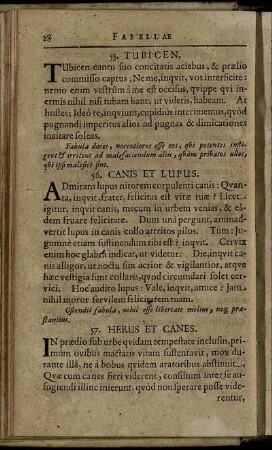 28 FABELLAE
55. TUBICEN.
Tubicen cantu suo concitatis aciebus, & prælio
commisso captus; Ne me, inqvit, vos interficite:
nemo enim vestrûm à me est occisus, qvippe qvi in-
ermis nihil nisi tubam hanc, ut videris, habeam. At
hostes; Ideò te, inqviunt, cupidiùs interimemus, qvòd
pugnandi imperitus alios ad pugnas & dimicationes
incitare soleas.
Fabula docet, nocentiores esse eos, qvi potentes insti-
gent & irritent ad malefaciendum aliis, qvàm privatos illos,
qvi ipsi malefici sint.
56. CANIS ET LUPUS.
Admirans lupus nitorem corpulenti canis: Qvan-
ta, inqvit, frater, felicitas est vitæ tuæ? Licet
igitur, inqvit canis, mecum in urbem venias, & eâ-
dem fruare felicitate. Dum unà pergunt, animad-
vertit lupus in canis collo attritos pilos. Tum: Ju-
gumnè etiam sustinendum tibi est? inqvit. Cervix
enim hoc glabra indicat, ut videtur. Die, inqvit ca-
nis alligor, ut noctu sim acrior & vigilantior, atqve
hæc vestigia sunt collaris, qvod circumdari solet cer-
vici. Hoc audito lupus: Vale, inqvit, amice: Jam
nihil moror servilem felicitatem tuam.
Ostendit fabula, nihil esse libertate melius, neq; præ-
stantius.
57. HERUS ET CANES.
In prædio sub urbe qvidam tempestate inclusus, pri-
mum ovibus mactatis vitam sustentavit, mox du-
rante illâ, ne à bobus qvidem aratoribus abstinuit.
Qvæ cum canes fieri viderent, consilium inter se au-
fugiendi illinc inierunt. qvòd non sperare posse vide-
rentur,